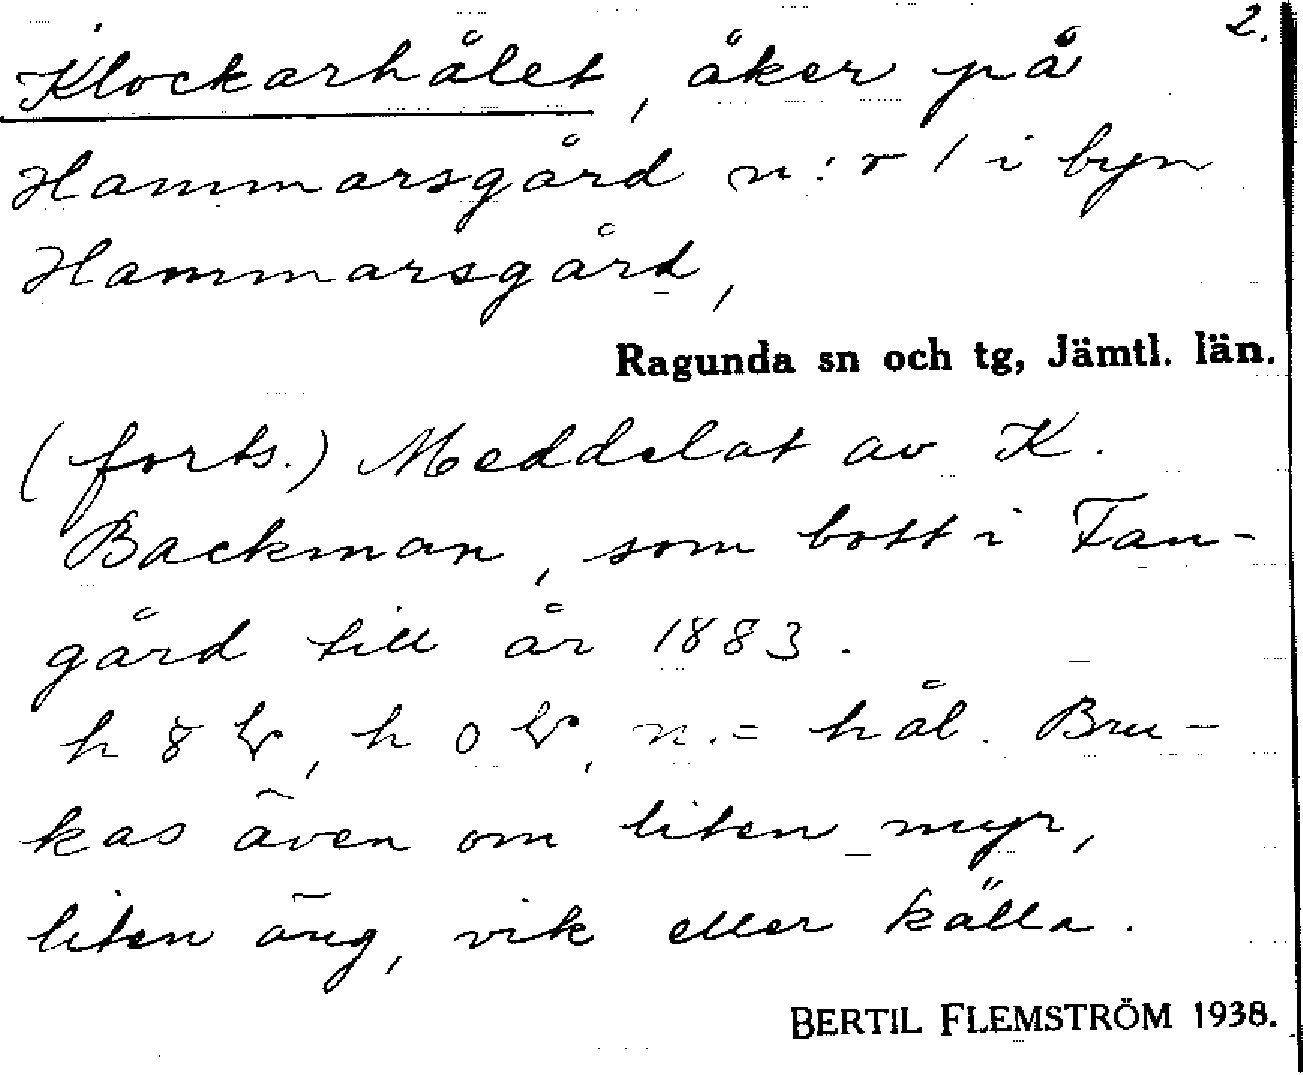 2.
Klockarhålet, åker på
Hammarsgård n:r 1 i byn
Hammarsgård,
Ragunda sn och tg, Jämtl. län.
(forts.) Meddelat av K.
Backman, som bott i Fan-
gård till år 1883.
n. = hål. Bru-
kas även om liten myr,
liten äng, vik eller källa.
BERTIL FLEMSTRÖM 1938.